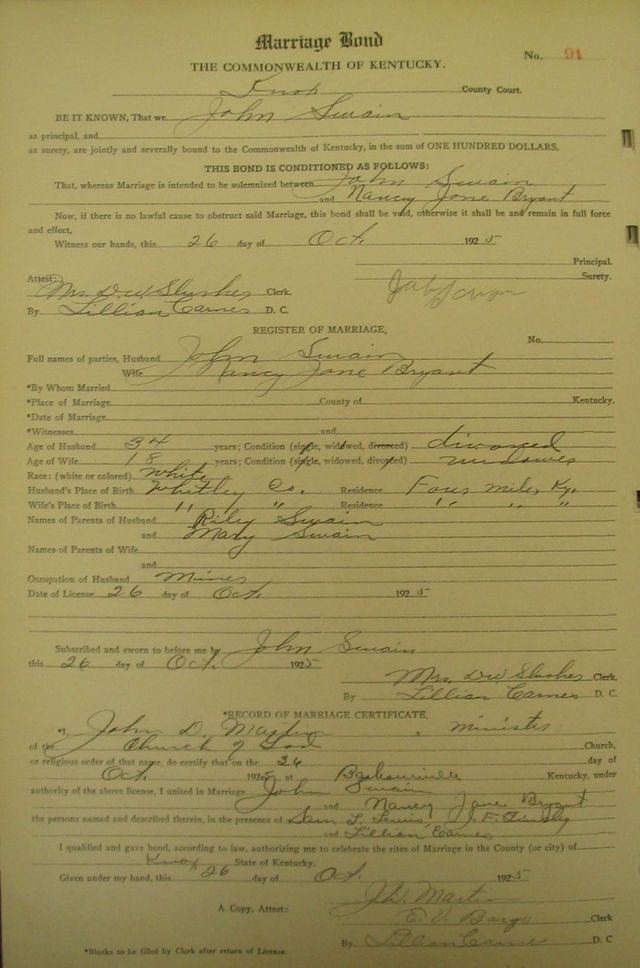 Marriage Bond
No. 91
THE COMMONWEALTH OF KENTUCKY.
Knox County Court.
BE IT KNOWN, That we John Swain
as principal, and
as surety, are jointly and severally bound to the Commonwealth of Kentucky, in the sum of ONE HUNDRED DOLLARS.
THIS BOND IS CONDITIONED AS FOLLOWS:
That, whereas Marriage is intended to be solemnized between John Swain
and Nancy Jane Bryant
Now, if there is no lawful cause to obstruct said Marriage, this bond shall be void, otherwise it shall be and remain in full force
and effect,
Witness our hands, this 26 day of Oct. 1925
Principal.
Attest: Surety.
Mrs. DW Slusher Clerk.
By Lillian Carnes D. C.
REGISTER OF MARRIAGE,
No.
Full names of parties, Husband John Swain
Wife Nancy Jane Bryant
*By Whom Married
*Place of Marriage County of Kentucky.
*Date of Marriage
*Witnesses and
Age of Husband 34 years; Condition (single, widowed, divorced) divorced
Age of Wife 18 years; Condition (single, widowed, divorced) widowed
Race: (white or colored) White
Husband's Place of Birth Whitley Co. Residence Four mile, Ky.
Wife's Place of Birth " " " Residence " " "
Names of Parents of Husband Rily Swain
and Mary Swain
Names of Parents of Wife
and
Occupation of Husband Miner
Date of License 26 day of Oct. 1925
Subscribed and sworn to before me by John Swain
this 26 day of Oct. 1925
Mrs. DW Slusher Clerk,
By Lillian Carnes D. C.
*RECORD OF MARRIAGE CERTIFICATE,
*I, John D. Martin, minister
of the Church of God Church,
or religious order of that name, do certify that on the 26 day of
Oct. 1925, at Barbourville Kentucky, under
authority of the above license, I united in Marriage John Swain
and Nancy Jane Bryant
the persons named and described therein, in the presence of Sam L. Lewis, J. F.
and Lillian Carnes
I qualified and gave bond, according to law, authorizing me to celebrate the rites of Marriage in the County (or city) of
Knox State of Kentucky.
Given under my hand, this 26 day of Oct. 1925
J.D. Martin
A Copy, Attest: Bargo Clerk
By Lillian Carnes D. C
*Blanks to be filled by Clerk after return of License.